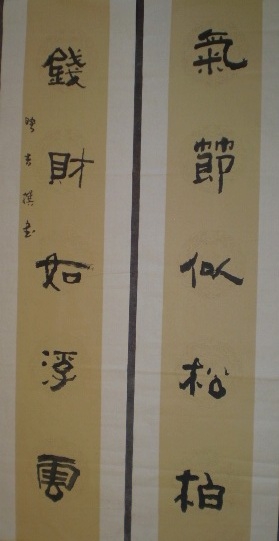 氣節似松柏
錢財如浮雲